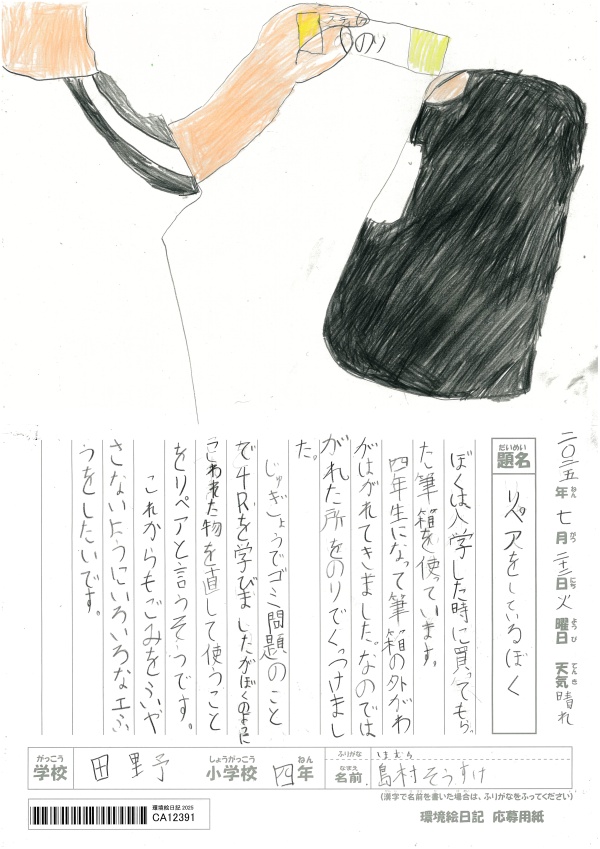 のり
二〇二五年七月二十二日火曜日 天気晴れ
ねん がつ にち ようび てんき
だいめい
題名 リペアをしているぼく
ぼくは入学した時に買ってもらっ
た筆箱を使っています。
四年生になって筆箱の外がわ
がはがれてきました。なのでは
がれた所をのりでくっつけまし
た。
じゅぎょうでゴミ問題のこと
で4Rを学びましたがぼくのように
こわれた物を直して使うこと
をリペアと言うそうです。
これからもごみをふや
さないようにいろいろなエふ
うをしたいです。
がっこう しょうがっこう ねん ふりがな
学校 田野 小学校 四年
なまえ
名前 島村そうすけ
(漢字で名前を書いた場合は、ふりがなをふってください)
環境絵日記 2025
CA12391
環境絵日記 応募用紙